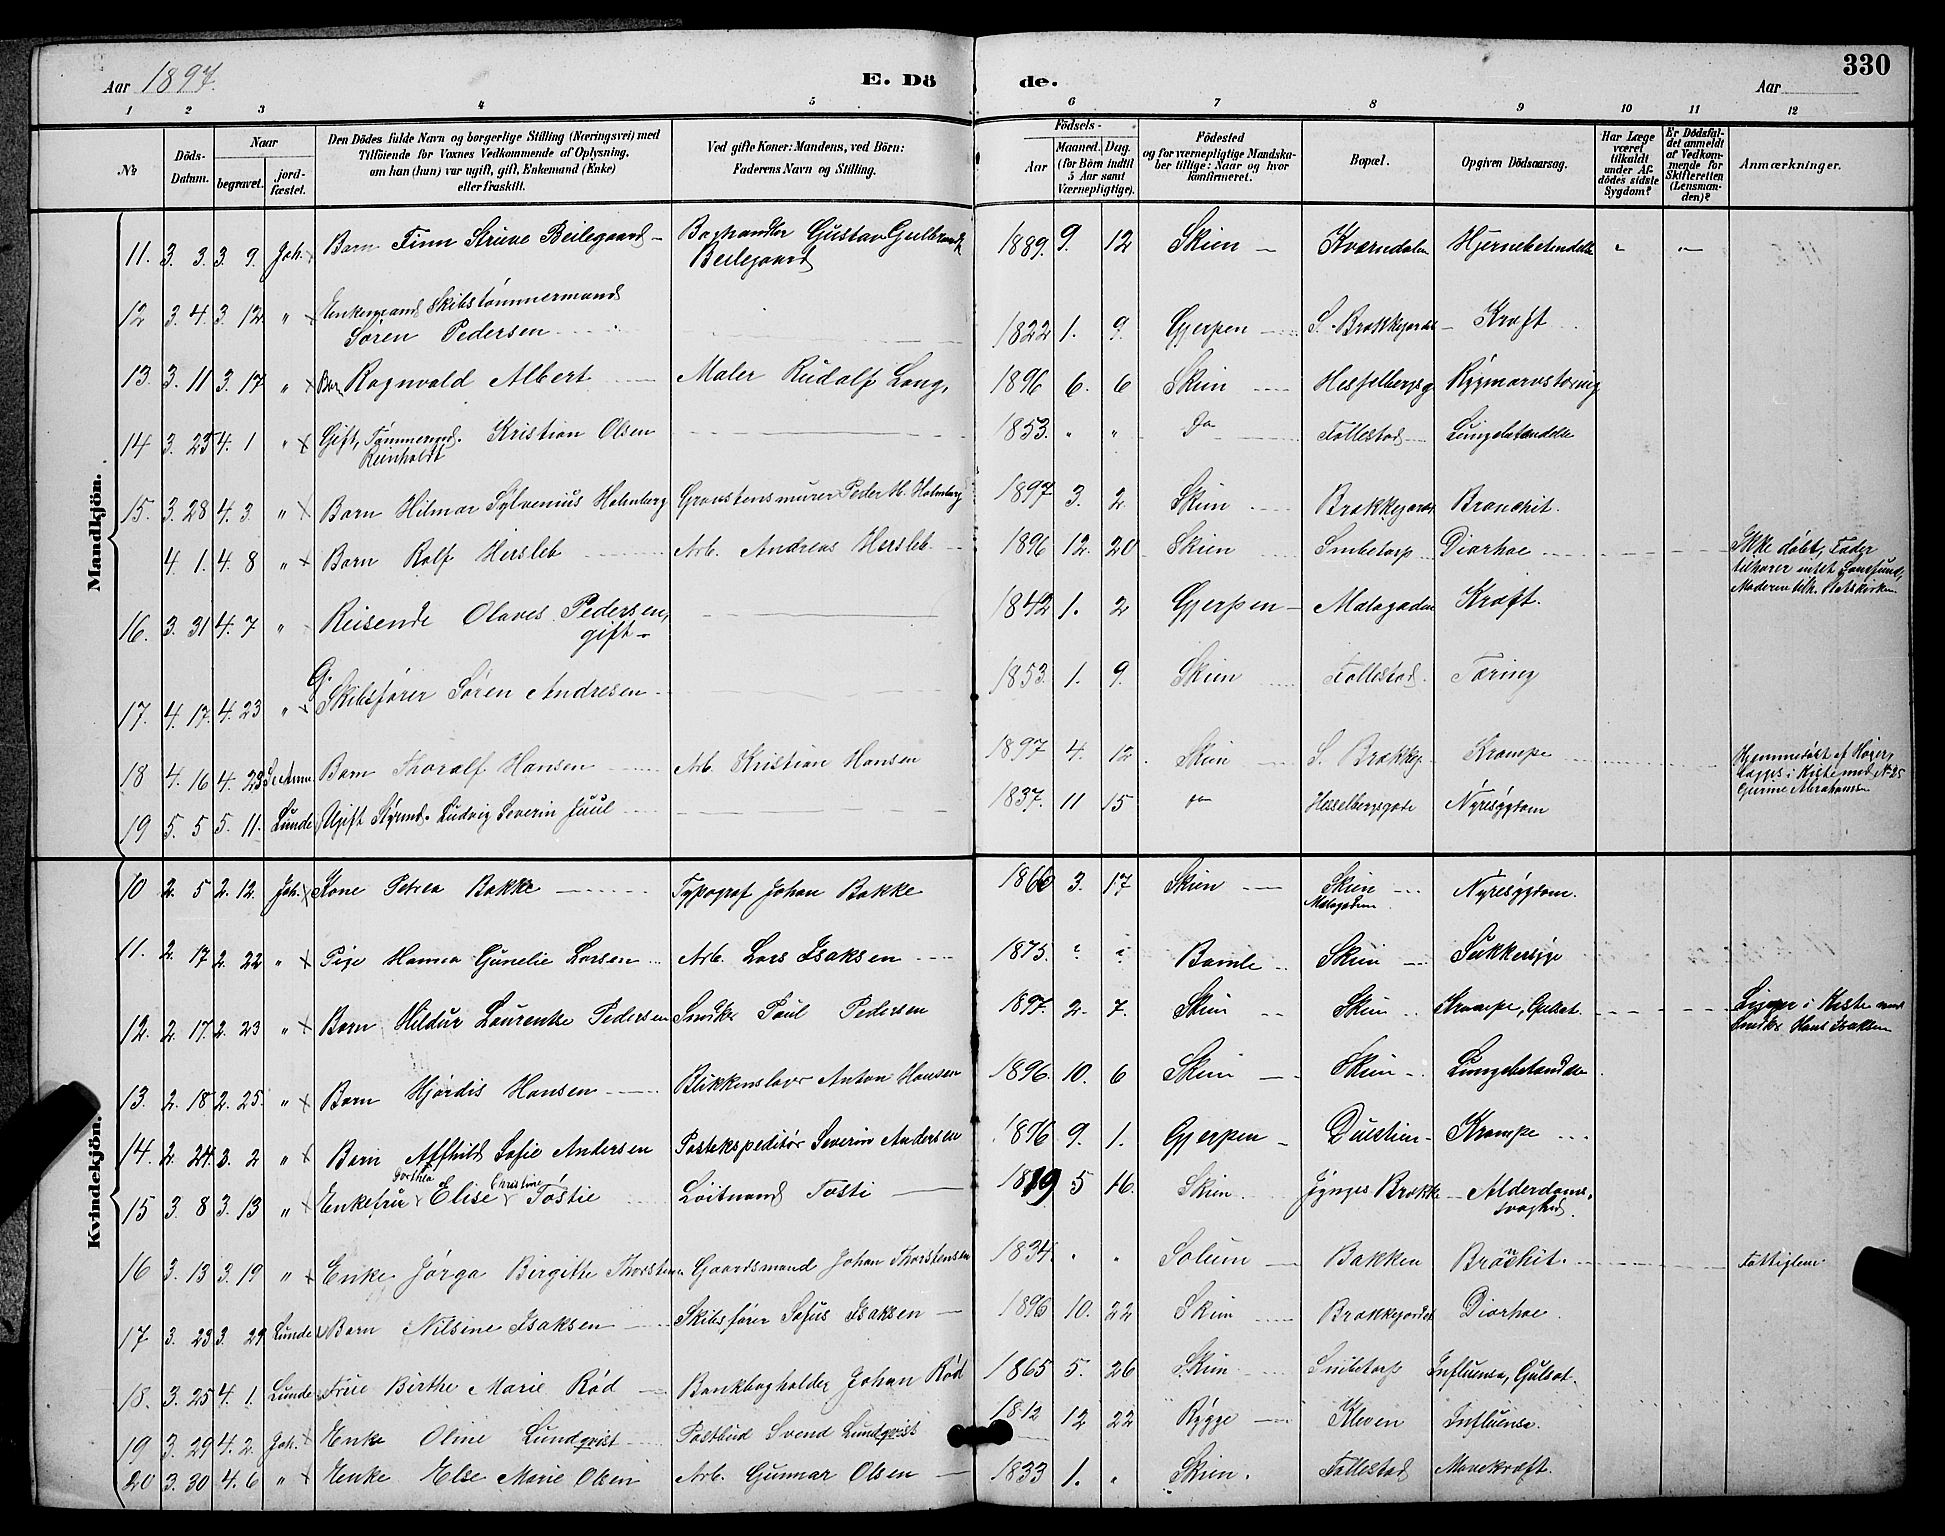 Aar 1897. E. Döde. Aar 330
1 2 3 4 5 6 7 8 9 10 11 12
№ Döds-Datum. Naar begravet. jordfæstet. Den Dödes fulde Navn og borgerlige Stilling (Næringsvei) med Tilföiende for Voxnes Vedkommende af Oplysning, om han (hun) var ugift, gift, Enkemand (Enke) eller fraskilt. Ved gifte Koner: Mandens, ved Börn: Faderens Navn og Stilling. Födsels- Aar Maaned. Dag. (for Börn indtil 5 Aar samt Værnepligtige). Födested og for værnepligtige Mandskaber tillige: Naar og hvor konfirmeret. Bopæl. Opgiven Dödsaarsag. Har Læge været tilkaldt under Afdödes sidste Sygdom? Er Dödsfaldet anmeldt af Vedkommende for Skifteretten (Lensmanden)? Anmærkninger.
Mandkjön.
11. 3. 3. 3 9. Joh. Barn Finn Strüve Beilegaard Boghandler Gustav Gulbrand Beilegaard 1889. 9. 12 Skien Kværndalen Hjernebetendelse
12 3. 4. 3. 12 " Enkemand Skibstømmermand Søren Pedersen 1822 1. 9. Gjerpen S. Brækkejordet Kræft
13. 3. 11 3. 17 " Barn Ragnvald Albert Maler Rudolf Lang, 1896 6. 6 Skien Hesselbergsg Rygmarvstæring
14 3. 25 4. 1 " Gift, Tømmermd. Reinholdt Kristian Olsen 1853. " " Do Follestad Lungebetændelse
15. 3. 28 4. 3. " Barn Hilmar Sylvenius Holmberg Graastensmurer Peder M. Holmberg 1897 3. 2 Skien Brækkejordet Bronchit.
4. 1. 4. 8 " Barn Rolf Hersleb Arb. Andreas Hersleb 1896 12. 20 Skien Smbetorp Diarhoe Ikke døbt, Fader tilhører intet Samfund, Moderen tilh. Statskirken
16. 3. 31 4. 7 " Reisende Olaves Pedersen, gift 1842 1. 2 Gjerpen Mælagaden Kræft.
17. 4. 17. 4. 23 " G. Skibsfører Søren Andresen 1853. 1. 9. Skien Follestad Tæring
18 4. 16 4. 23 Barn Thoralf Hansen Arb. Kristian Hansen 1897 4. 12 Skien S. Brækkej. Krampe Hjemmedøbt af
19 5. 5 5. 11. Lunde Ugift Styrmd. Ludvig Severin Juul 1837. 11 15 Do Hesselbergsgade Nyresygdom
Kvindekjön.
10 2. 5 2. 12. Joh. Kone Petrea Bakke Typograf Johan Bakke 1860 3. 17 Skien Skien Mælagaden Nyresygdom.
11. 2. 17 2. 22 " Pige Hanna Gunelie Larsen Arb. Lars Isaksen 1875. " " Bamle Skien Sukkersyge
12. 2. 17 2. 23 " Barn Hildur Laurentse Pedersen Snedker Paul Pedersen 1897. 2. 7. Skien Skien Krampe, Gulsot. Ligger i Kiste med Snedker Hans Isaksen
13. 2. 18 2. 25. " Barn Hjørdis Hansen Blikkenslager Anton Hansen 1896. 10. 6 Skien Skien Lungebetændelse
14. 2. 24. 3. 2 " Barn Alfhild Sofie Andersen Postekspeditør Severin Andersen 1896 9. 1. Gjerpen Duestien Krampe
15 3. 8 3. 13 " Enkefru Dorthea Elise Christine Tostie Løitnand Tosti 1819 5 16. Skien. Jynges Brække Alderdomssvaghed.
16 3. 13 3. 19 " Enke Jørga Birgithe Thorstensen Gaardsmand Johan Thorstensen 1834. " " Solum Bakken Bronchit. Fattiglem
17 3. 23 3. 29 Lunde Barn Nilsine Isaksen Skibsfører Sofus Isaksen 1896 10. 22 Skien Brækkejordet Diarhoe.
18. 3. 25 4. 1 Lunde Frue Birthe Marie Rød Bankbogholder Johan Rød 1865 5. 26 Skien Smbetorp Influensa, Gulsot.
19 3. 29 4. 2. Joh. Enke Oline Lundqvist Postbud Svend Lundqvist 1812 12 22 Rygge Kleven Influensa.
20 3. 30 4. 6 " Enke Else Marie Olsen Arb. Gunnar Olsen 1833 1. " Skien. Follestad Mavekræft.